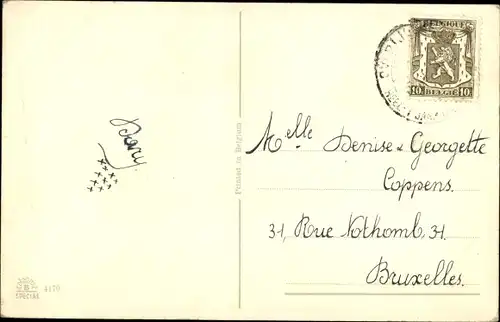 BELGIQUE
10 BELGIE 10
Melle Denise & Georgette
Coppens.
31, Rue Nothomb, 31.
Bruxelles.
Printed in Belgium
4170